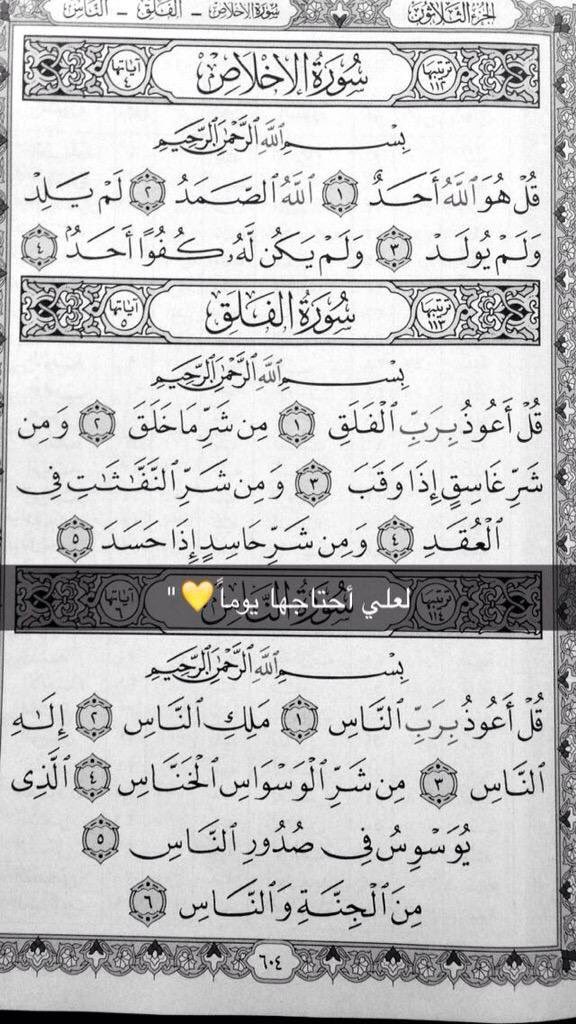 الجزء الثلاثون سورة الإخلاص - الفلق - الناس
ترتيبها ١١٢ سُورَةُ الإِخْلَاصِ آياتها ٤
بِسْمِ ٱللَّهِ ٱلرَّحْمَٰنِ ٱلرَّحِيمِ
قُلْ هُوَ ٱللَّهُ أَحَدٌ ١ ٱللَّهُ ٱلصَّمَدُ ٢ لَمْ يَلِدْ
وَلَمْ يُولَدْ ٣ وَلَمْ يَكُن لَّهُۥ كُفُوًا أَحَدٌۢ ٤
ترتيبها ١١٣ سُورَةُ الفَلَقِ آياتها ٥
بِسْمِ ٱللَّهِ ٱلرَّحْمَٰنِ ٱلرَّحِيمِ
قُلْ أَعُوذُ بِرَبِّ ٱلْفَلَقِ ١ مِن شَرِّ مَا خَلَقَ ٢ وَمِن
شَرِّ غَاسِقٍ إِذَا وَقَبَ ٣ وَمِن شَرِّ ٱلنَّفَّٰثَٰتِ فِي
ٱلْعُقَدِ ٤ وَمِن شَرِّ حَاسِدٍ إِذَا حَسَدَ ٥
ترتيبها ١١٤ سُورَةُ النَّاسِ آياتها ٦
لعلي أحتاجها يوماً💛 "
بِسْمِ ٱللَّهِ ٱلرَّحْمَٰنِ ٱلرَّحِيمِ
قُلْ أَعُوذُ بِرَبِّ ٱلنَّاسِ ١ مَلِكِ ٱلنَّاسِ ٢ إِلَٰهِ
ٱلنَّاسِ ٣ مِن شَرِّ ٱلْوَسْوَاسِ ٱلْخَنَّاسِ ٤ ٱلَّذِي
يُوَسْوِسُ فِي صُدُورِ ٱلنَّاسِ ٥
مِنَ ٱلْجِنَّةِ وَٱلنَّاسِ ٦
٦٠٤